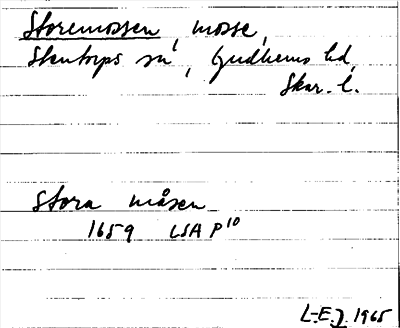 Storemossen, mosse,
Stentorps sn, Gudhems hd,
Skar. l.
Stora måsen
1659 LSA P 10
L-E.J. 1965